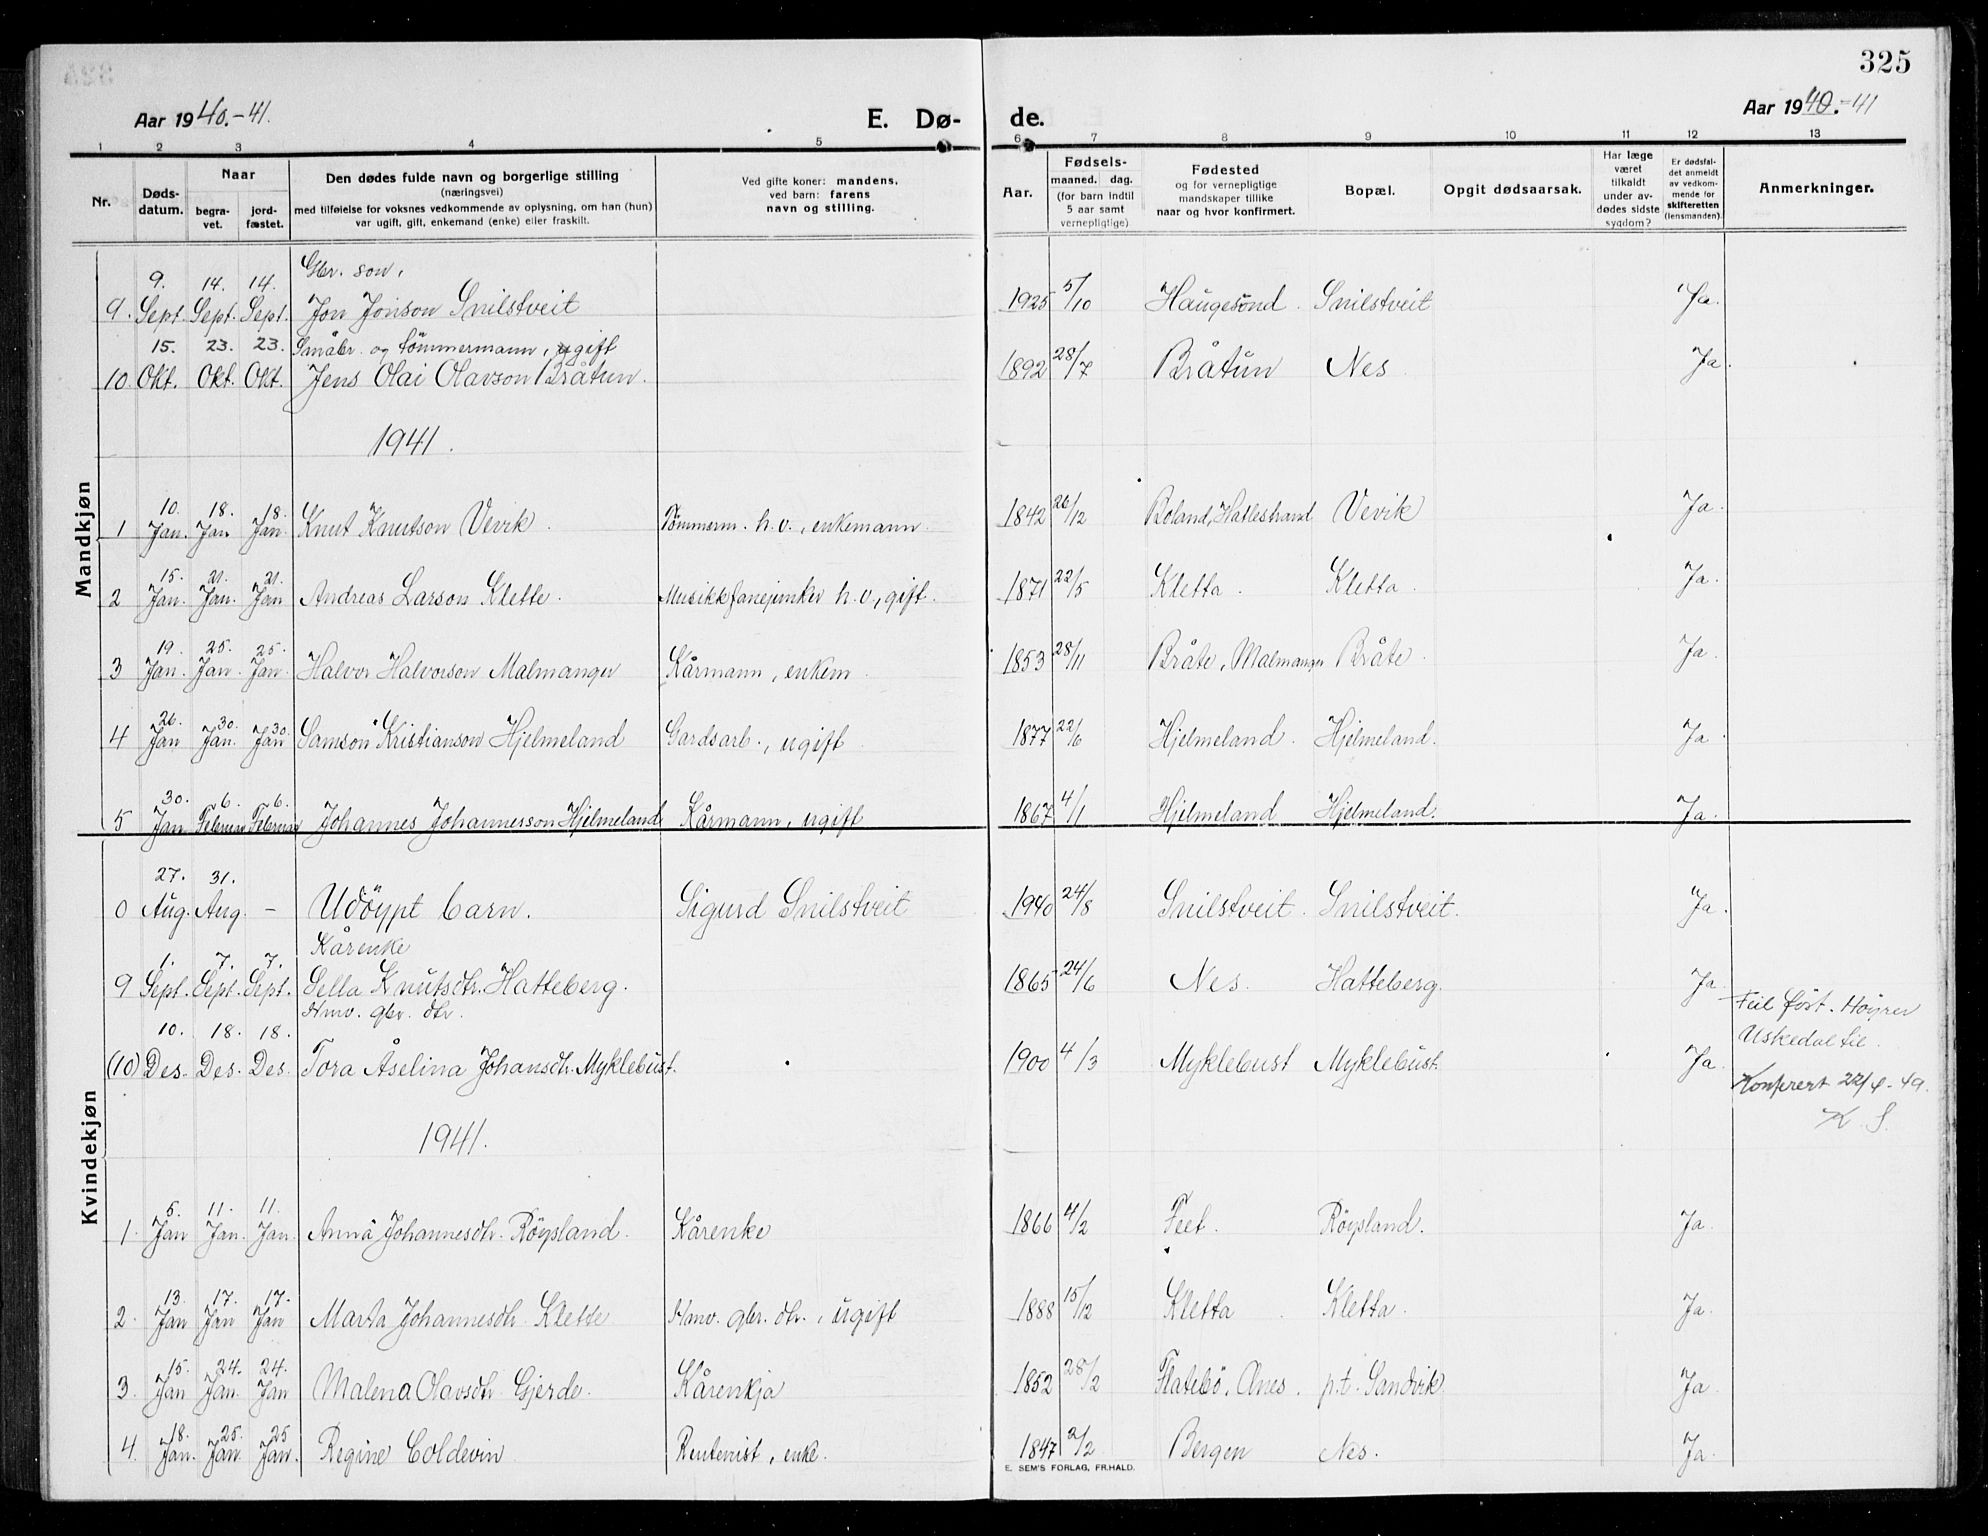 325
Aar 1940.-41.
E. Dø-
de.
Aar 1940.-41
1 2 3 4 5 6 7 8 9 10 11 12 13
Nr.
Døds-
datum.
Naar
begra-
vet.
jord-
fæstet.
Den dødes fulde navn og borgerlige stilling
(næringsvei)
med tilføielse for voksnes vedkommende av oplysning, om han (hun)
var ugift, gift, enkemand (enke) eller fraskilt.
Ved gifte koner: mandens,
ved barn: farens
navn og stilling.
Aar.
Fødsels-
maaned. dag.
(for barn indtil
5 aar samt
vernepligtige)
Fødested
og for vernepligtige
mandskaper tillike
naar og hvor konfirmert.
Bopæl.
Opgit dødsaarsak.
Har læge
været
tilkaldt
under av-
dødes sidste
sygdom?
Er dødsfal-
det anmeldt
av vedkom-
mende for
skifteretten
(lensmanden).
Anmerkninger.
Mandkjøn
Gbr. son,
9. 9. Sept. 14. Sept. 14. Sept. Jon Jonson Snilstveit 1925 5/10 Haugesund. Snilstveit Ja.
Småbr. og tömmermann, ugift
10 15. Okt. 23. Okt. 23. Okt. Jens Olai Olavson Bråtun. 1892 28/7 Bråtun Nes. Ja.
1941.
1 10. Jan. 18. Jan. 18. Jan. Knut Knutson Vevik. Tömmerm. h.v., enkemann. 1842 26/12 Boland, Hatlestrand Vevik Ja.
2 15. Jan. 21. Jan. 21. Jan Andreas Larson Klette. Musikkfanejunker h.v., gift. 1871 22/5 Kletta. Kletta. Ja.
3 19. Jan. 25. Jan. 25. Jan. Halvor Halvorson Malmanger Kårmann, enkem. 1853 28/11 Bråte, Malmanger Bråte. Ja.
4 26. Jan 30. Jan. 30. Jan Samson Kristianson Hjelmeland Gardsarb., ugift. 1877 22/6 Hjelmeland. Hjelmeland. Ja.
5 30. Jan 6. Februar 6. Februar Johannes Johannesson Hjelmeland Kårmann, ugift 1867 4/11 Hjelmeland Hjelmeland. Ja.
Kvindekjøn
0 27. Aug. 31. Aug. - Udöypt barn. Sigurd Snilstveit 1940 24/8 Snilstveit. Snilstveit. Ja.
Kårenke
9 1. Sept. 7. Sept. 7. Sept. Sella Knutsdtr. Hatteberg. 1865 24/6 Nes. Hatteberg. Ja.
Hmv. gbr. dtr.
(10) 10. Des. 18. Des. 18. Des. Tora Åselina Johansdtr. Myklebust. 1900 4/3 Myklebust Myklebust. Ja.
Feil föst. Höyrer
Uskedal til.
22/4-49.
K. S.
1941.
1. 5. Jan 11. Jan. 11. Jan. Anna Johannesdtr. Röysland. Kårenke 1866 4/2 Feet. Röysland. Ja.
2. 13. Jan 17. Jan 17. Jan Marta Johannesdtr. Klette Hmv. gbr. dtr., ugift 1888 15/12 Kletta. Kletta. Ja.
3. 15. Jan 24. Jan. 24. Jan Malena Olavsdtr. Gjerde. Kårenkja 1852 28/2 Flatebö, Ænes. p.t. Sandvik. Ja.
4. 18. Jan. 25. Jan. 25 Jan. Regine Coldevin Rentenist, enke. 1847 2/2 Bergen Nes. Ja.
E. SEM'S FORLAG, FR.HALD.